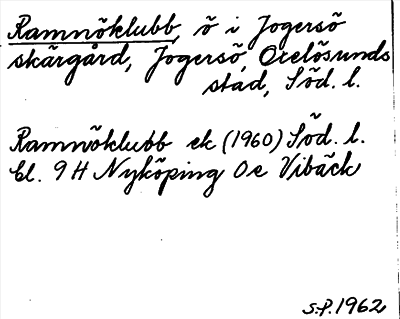 Ramnöklubb, ö i Jogersö
skärgård, Jogersö, Oxelösunds
stad, Söd. l.
Ramnöklubb ek (1960) Söd. l.
bl. 9H Nyköping Oe Vibäck
S.P. 1962